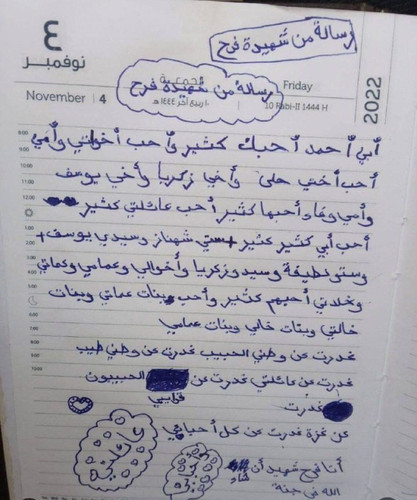 رسالة من شهيدة فرح
٤
نوفمبر
November 4
جمعة
Friday
2022
رسالة من شهيدة فرح
١٠ ربيع آخر ١٤٤٤ هـ
10 Rabi-II 1444 H
أبي أحمد أحبك كثير وأحب أخواتي وأمي
أحب أختي حلى وأخي زكريا وأخي يوسف
وأمي وفاء أحبها كثير أحب عائلتي كثير
أحب أبي كثير كثير + ستي شهناز وسيدي يوسف +
وستو نظيفة وسيدو زكريا وأخوالي وعمامي وعماتي
وخالاتي أحبهم كثير وأحب بنات عماتي وبنات
خالتي وبنات خالي وبنات عمامي
غدرت عن وطني الحبيب غدرت عن وطني طيب
غدرت عن عائلتي غدرت عن الحبيبون
قلبي
غدرت
عن غزة غدرت عن كل أحبابي
عائلتي
أنا فرح شهيد أن شاء
الله في جنة